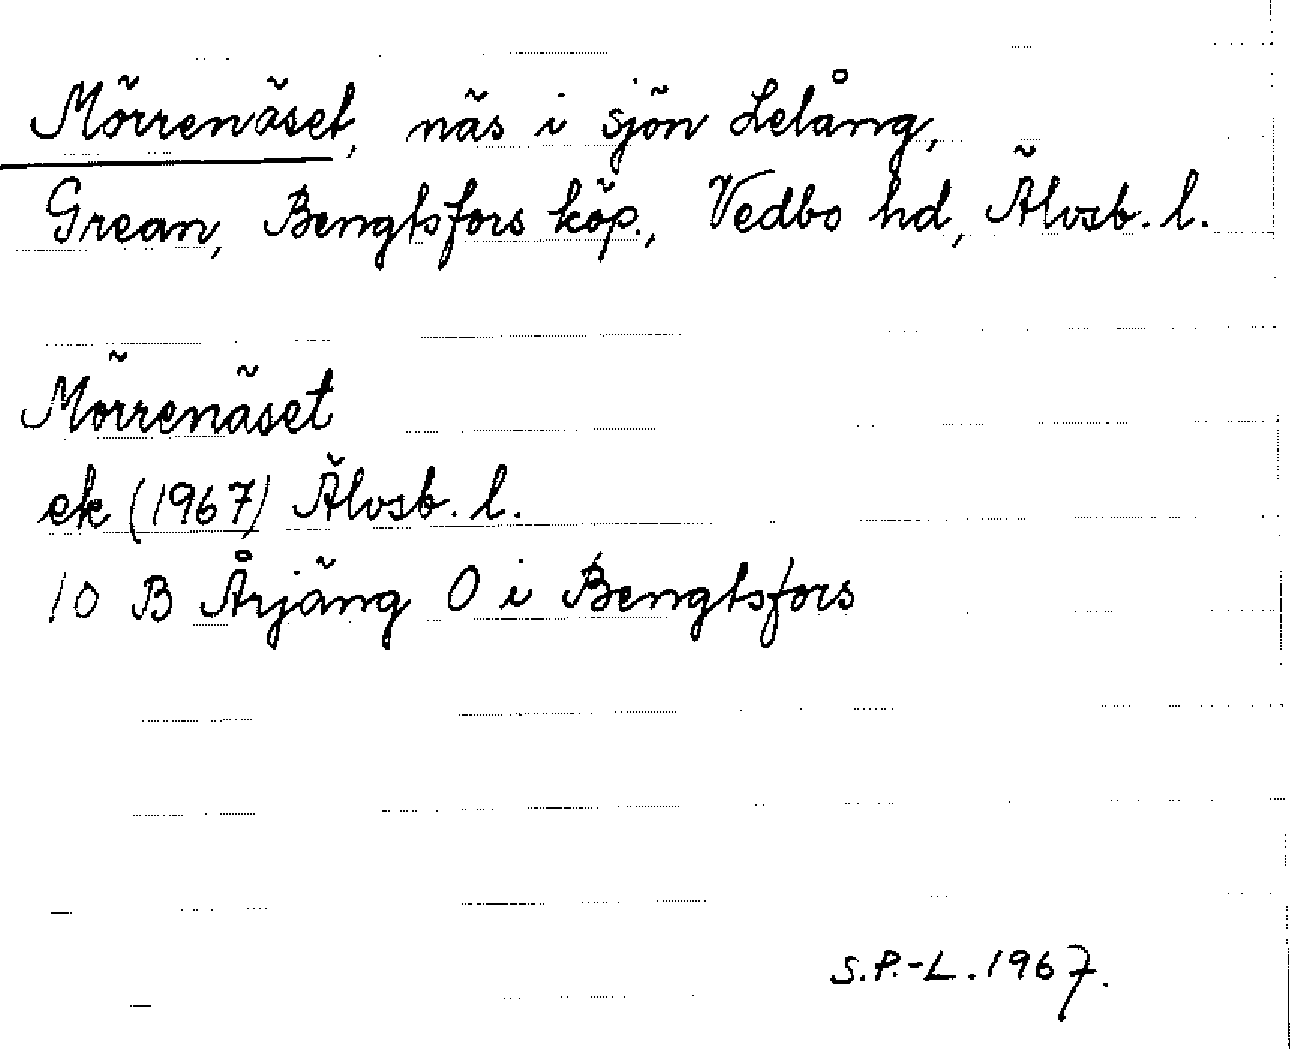 Mörrenäset, näs i sjön Lelång,
Grean, Bengtsfors köp., Vedbo hd, Älvsb. l.
Mörrenäset
ek (1967) Älvsb. l.
10 B Årjäng O i Bengtsfors
S.P.-L. 1967.